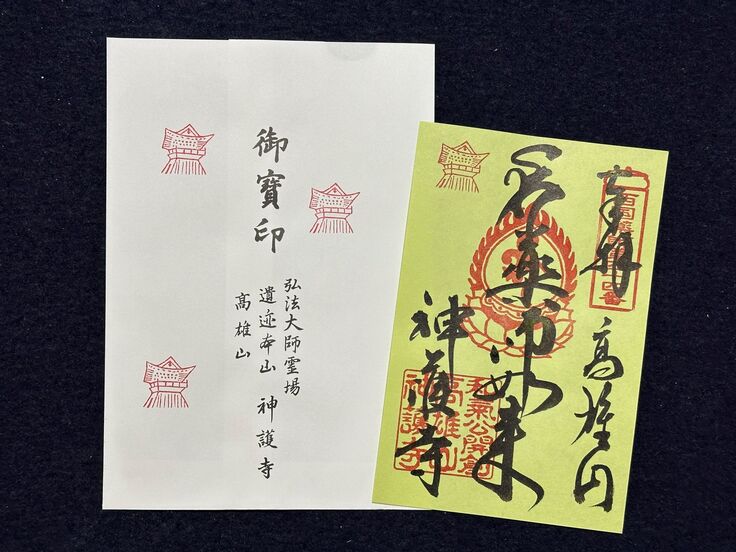 御寶印
弘法大師霊場
遺迹本山 神護寺
高雄山
奉拝
高雄山
薬師如来
神護寺
和氣公開創
高雄山
神護寺